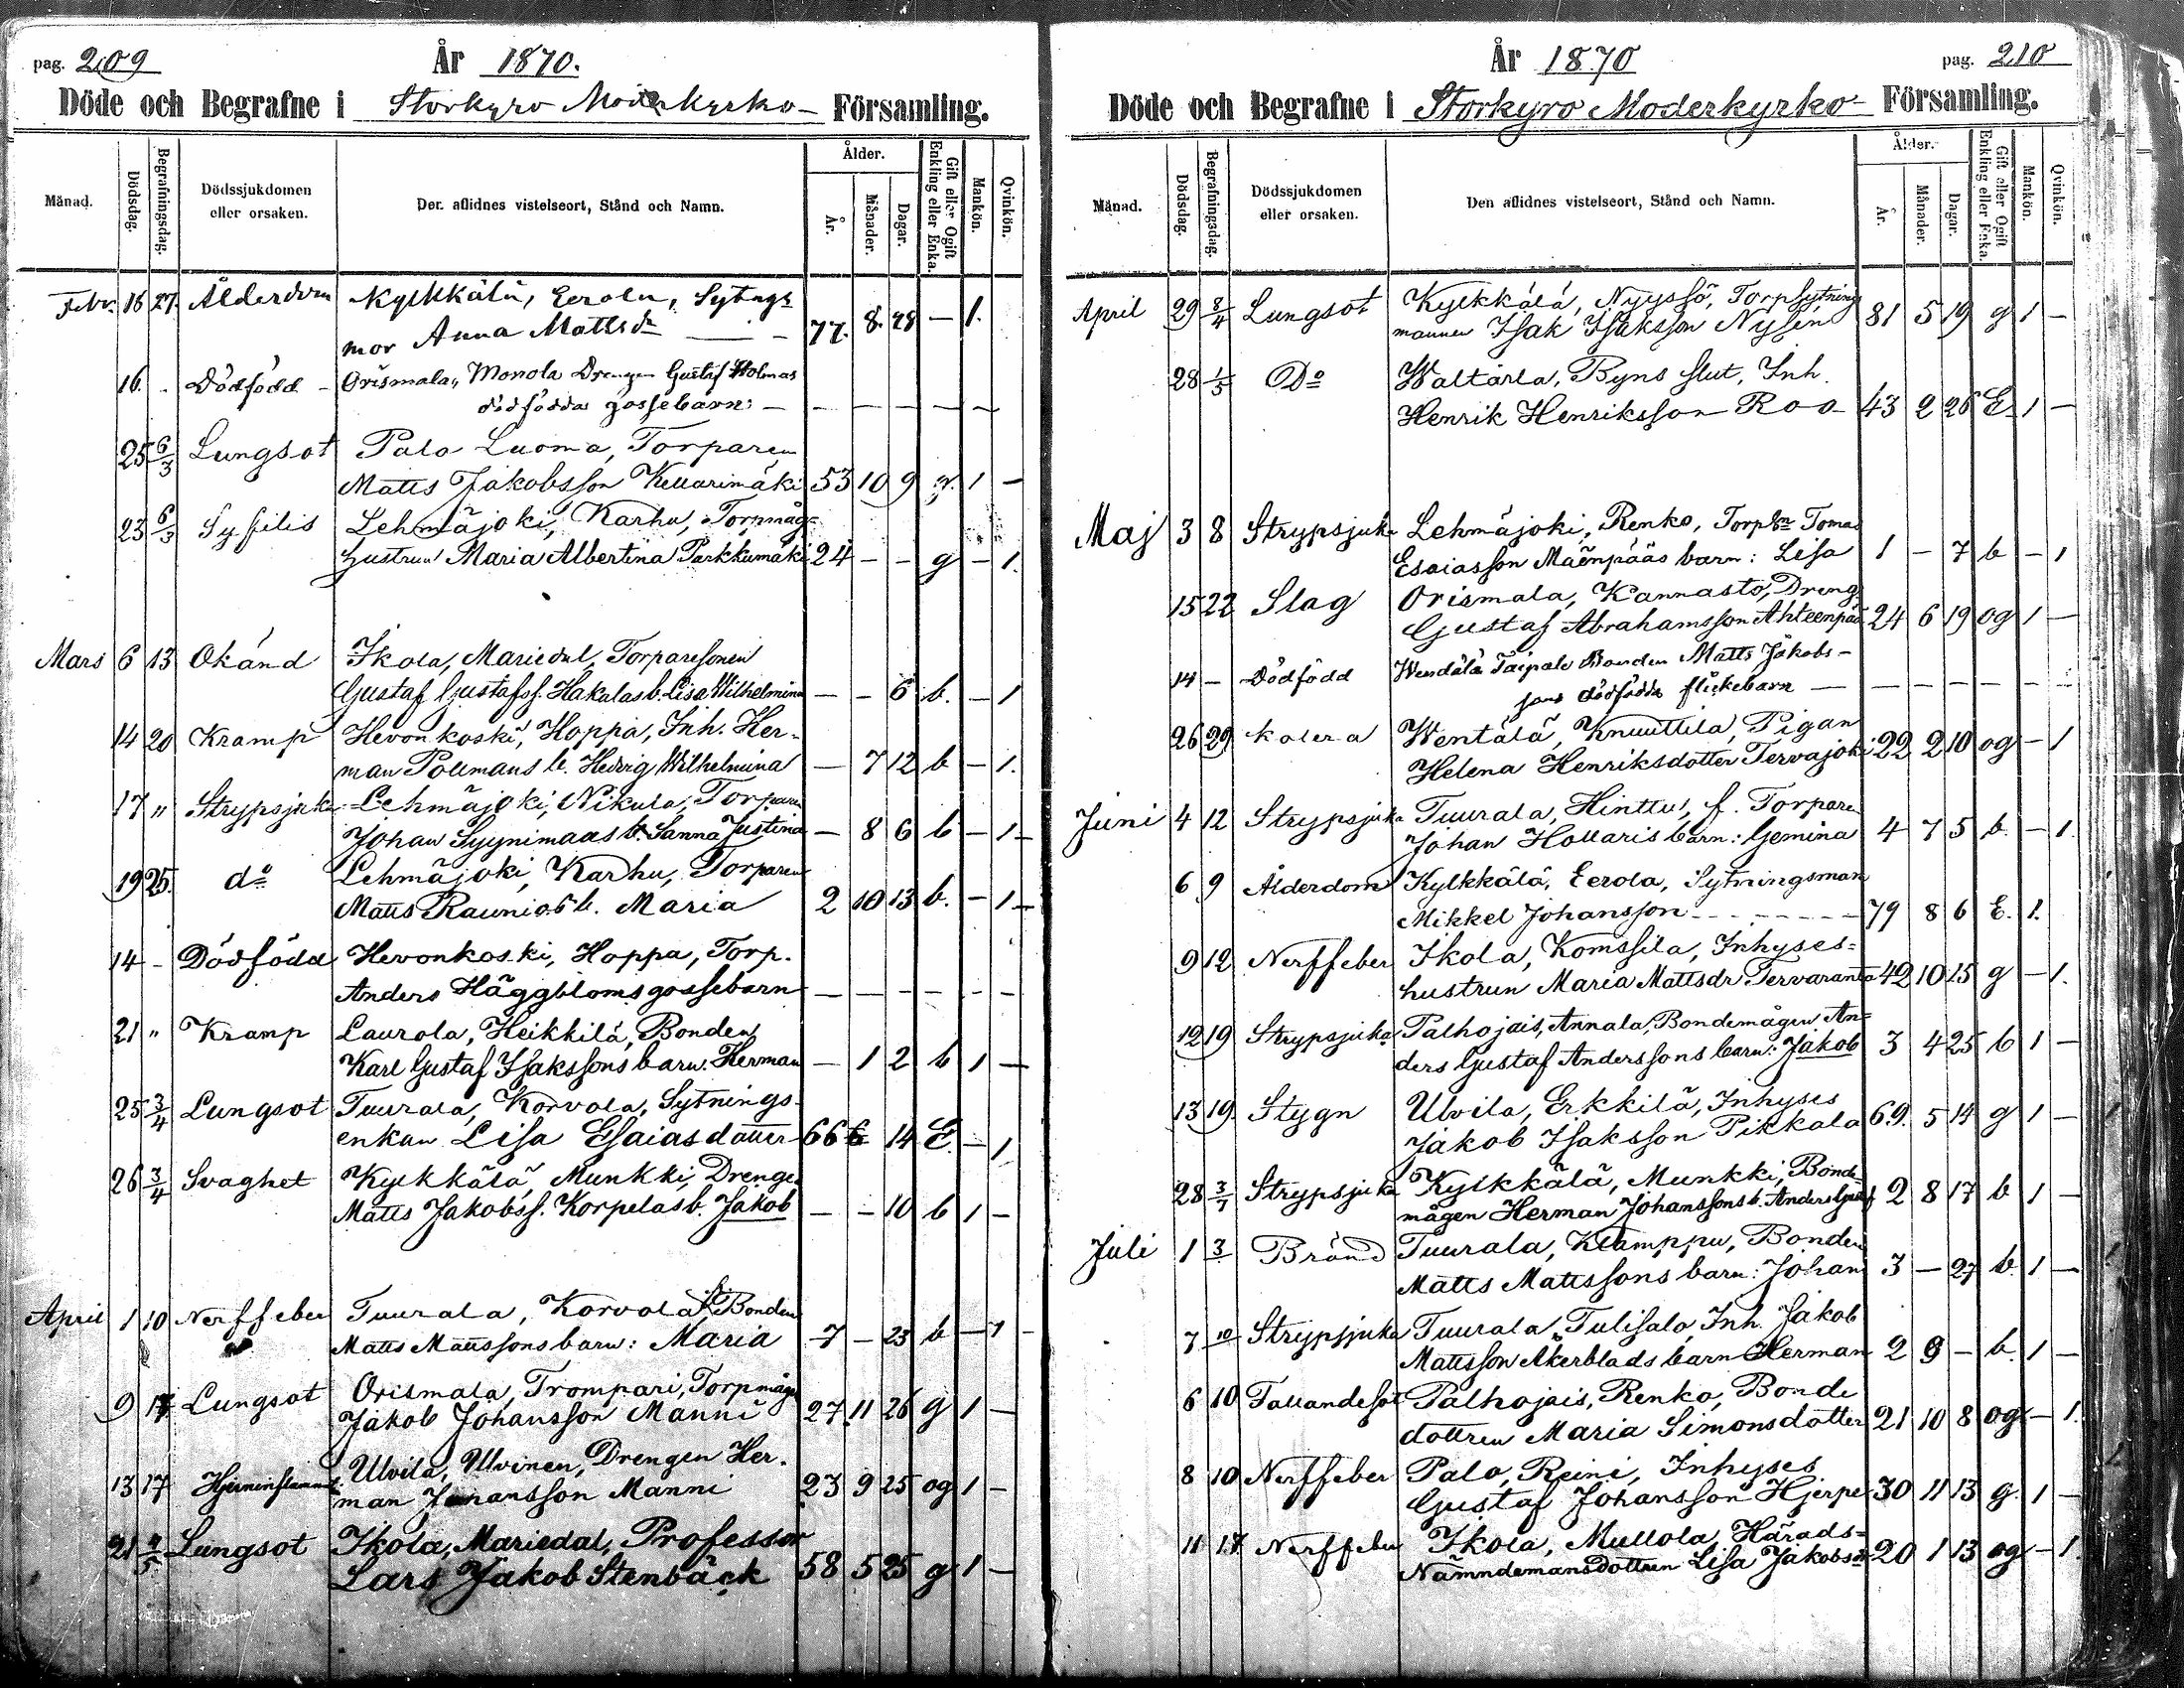 pag. 209
År 1870.
Döde och Begrafne i Storkyro Moderkyrko- Församling.
Månad. Dödsdag. Begrafningsdag. Dödssjukdomen eller orsaken. Den aflidnes vistelseort, Stånd och Namn. Ålder. År. Månader. Dagar. Gift eller Ogift Enkling eller Enka. Mankön. Qvinkön.
Febr. 16 27. Ålderdom Kylkkälä, Eerola, Sytngs-
mor Anna Mattsdr — 77. 8. 28 — 1.
16. - Dödfödd - Orismala, Monola Drengen Gustaf Holmas
dödfödda gossebarn: — — — — —
25 6/3 Lungsot Palo Luoma, Torparen
Matts Jakobsson Kellarimäki 53 10 9 g. 1 —
23 6/3 Syfilis Lehmäjoki, Karhu, Torpmågs-
hustrun Maria Albertina Parkkumäki 24 — — g — 1.
Mars 6 13 Okänd Ikola, Mariedal, Torparesonen
Gustaf Gustafss. Hakalas b. Lisa Wilhelmina — — 6 b. — 1
14 20 Kramp Hevonkoski, Hoppa, Inh. Her-
man Pollmans b. Hedvig Wilhelmina — 7 12 b — 1.
17 " Strypsjuka Lehmäjoki, Nikula, Torparen
Johan Syynimaas b. Sanna Justina — 8 6 b — 1 —
19 25. do Lehmäjoki, Karhu, Torparen
Matts Raunios b. Maria 2 10 13 b. — 1 —
14 - Dödfödd Hevonkoski, Hoppa, Torp.
Anders Häggbloms gossebarn — — — — — —
21 " Kramp Laurola, Heikkilä, Bonden
Karl Gustaf Isakssons barn. Herman — 1 2 b 1 —
25 3/4 Lungsot Tuurala, Korvola, Sytnings-
enkan Lisa Esaiasdotter 66 6 14 E. — 1
26 3/4 Svaghet Kylkkälä, Munkki, Drengen
Matts Jakobss. Korpelas b. Jakob — — 10 b 1 —
April 1 10 Nerffeber Tuurala, Korvola, f. Bonden
Matts Mattssons barn: Maria 7 — 23 b — 1 —
9 17 Lungsot Orismala, Trompari, Torpmågen
Jakob Johansson Manni 27 11 26 g 1 —
13 17 Ulvila, Ulvinen, Drengen Her-
man Johansson Manni 23 9 25 og 1 —
21 Lungsot Ikola, Mariedal, Professor
Lars Jakob Stenbäck 58 5 25 g 1 —
År 1870
pag. 210
Döde och Begrafne i Storkyro Moderkyrko- Församling.
Månad. Dödsdag. Begrafningsdag. Dödssjukdomen eller orsaken. Den aflidnes vistelseort, Stånd och Namn. Ålder. År. Månader. Dagar. Gift eller Ogift Enkling eller Enka. Mankön. Qvinkön.
April 29 8/4 Lungsot Kylkkälä, Nyyssö, Torpsytnings
mannen Isak Isaksson Nysén 81 5 19 g 1 —
28 1/5 Do Waltarla, Byns slut, Inh.
Henrik Henriksson Roo 43 2 26 E. 1 —
Maj 3 8 Strypsjuka Lehmäjoki, Renko, Torpn Tomas
Esaiasson Mäenpääs barn: Lisa 1 — 7 b — 1
15 22 Slag Orismala, Kannasto, Dreng
Gustaf Abrahamsson Ahteenpää 24 6 19 og 1 —
14 — Dödfödd Wendälä Taipale Bonden Matts Jakobs-
sons dödfödda flickebarn — — — — — —
26 29 kolera Wentälä, Knuuttila, Pigan
Helena Henriksdotter Tervajoki 22 2 10 og — 1
Juni 4 12 Strypsjuka Tuurala, Hinttu, f. Torparen
Johan Hollaris barn: Gemina 4 7 5 b. — 1.
6 9 Ålderdom Kylkkälä, Eerola, Sytningsman
Mikkel Johansson 79 8 6 E. 1.
9 12 Nerffeber Ikola, Komssila, Inhyses-
hustrun Maria Mattsdr Tervaranta 42 10 15 g — 1.
12 19 Strypsjuka Palhojais, Annala, Bondemågen An-
ders Gustaf Anderssons barn: Jakob 3 4 25 b 1 —
13 19. Stygn Ulvila, Erkkilä, Inhyses
Jakob Isaksson Pikkala 69. 5 14 g 1 —
28 3/7 Strypsjuka Kylkkälä, Munkki, Bonde-
mågen Herman Johanssons b. Anders Gustaf 2 8 17 b 1 —
Juli 1 3 Bränd Tuurala, Klamppu, Bonden
Matts Mattssons barn: Johan 3 — 27 b. 1 —
7 10 Strypsjuka Tuurala, Tulisalo, Inh. Jakob
Mattsson Åkerblads barn Herman 2 9 — b. 1 —
6 10 Fallandesot Palhojais, Renko, Bonde
dottren Maria Simonsdotter 21 10 8 og — 1.
8 10 Nerffeber Palo, Reini, Inhyses
Gustaf Johansson Hjerpe 30 11 13 g. 1 —
11 17 Nerffeber Ikola, Mullola, Härads-
Nämndemansdottren Lisa Jakobsdr 20 1 13 og — 1.